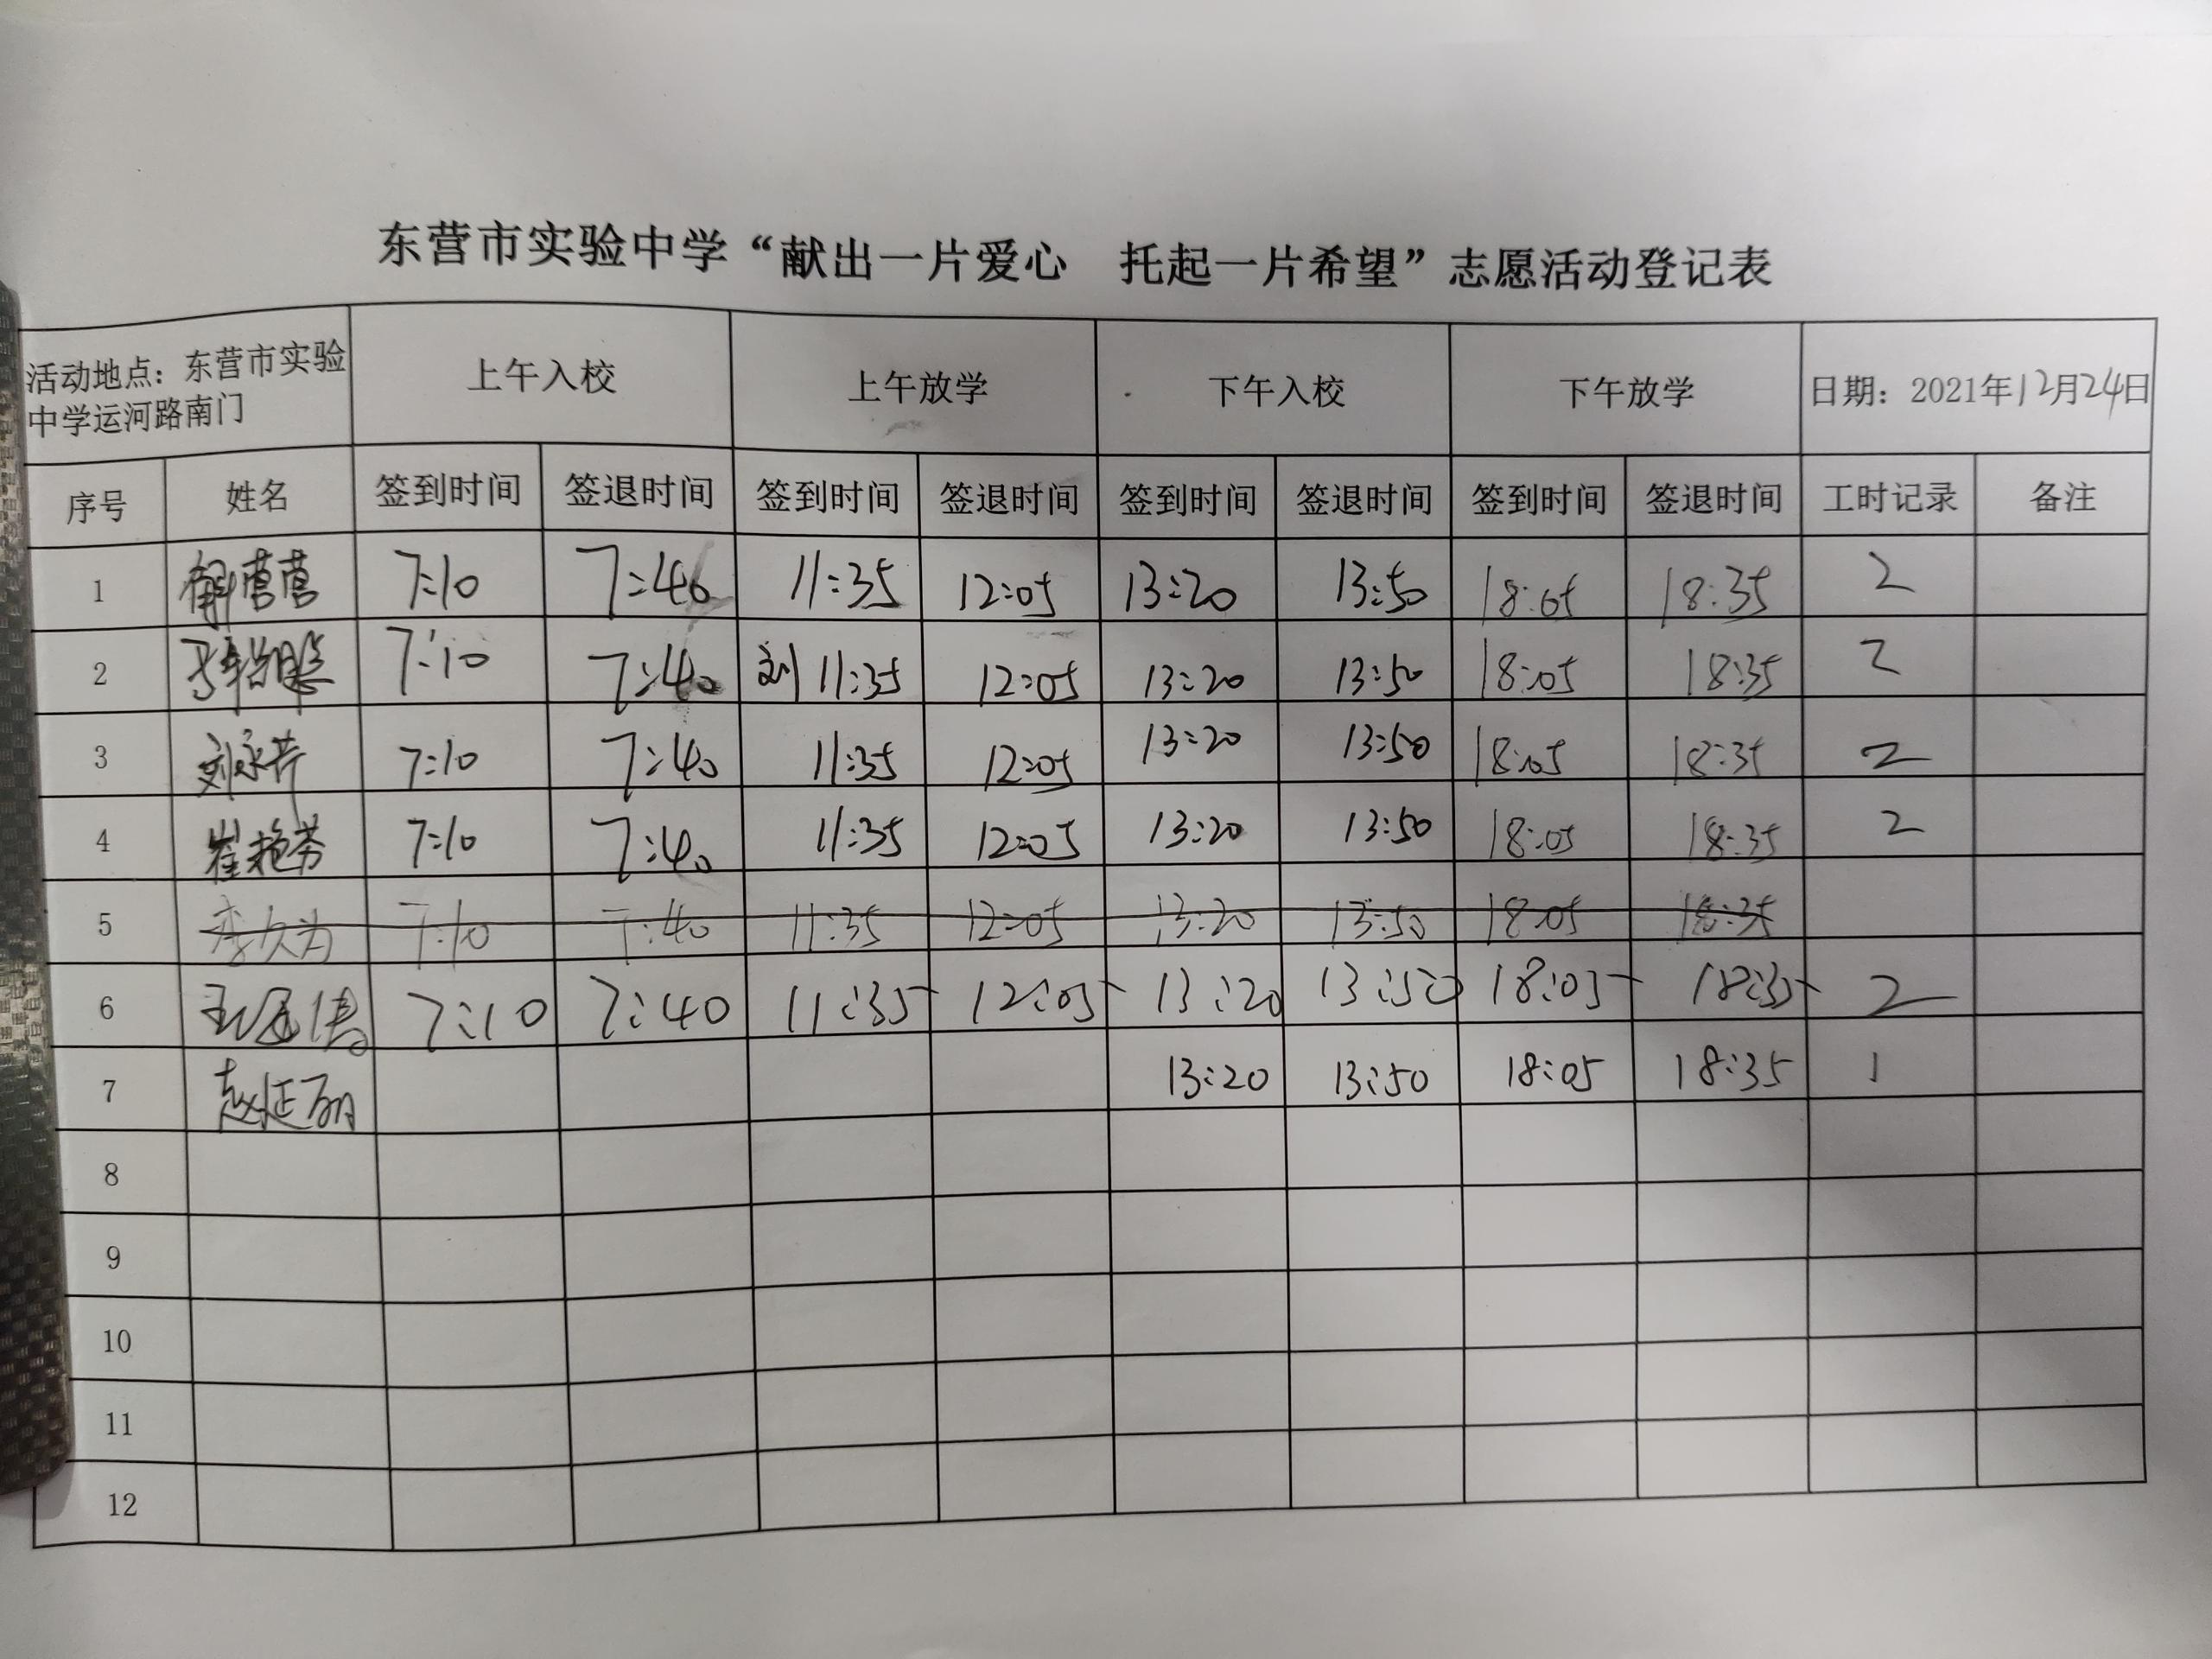 东营市实验中学“献出一片爱心 托起一片希望”志愿活动登记表
活动地点：东营市实验中学运河路南门 上午入校 上午放学 下午入校 下午放学 日期：2021年12月24日
序号 姓名 签到时间 签退时间 签到时间 签退时间 签到时间 签退时间 签到时间 签退时间 工时记录 备注
1 营营 7:10 7:40 11:35 12:05 13:20 13:50 18:05 18:35 2
2 7:10 7:40 刘 11:35 12:05 13:20 13:50 18:05 18:35 2
3 刘永芹 7:10 7:40 11:35 12:05 13:20 13:50 18:05 18:35 2
4 崔艳芬 7:10 7:40 11:35 12:05 13:20 13:50 18:05 18:35 2
5 李久为 7:10 7:40 11:35 12:05 13:20 13:50 18:05 18:35
6 7:10 7:40 11:35 12:05 13:20 13:50 18:05 18:35 2
7 赵延丽 13:20 13:50 18:05 18:35 1
8
9
10
11
12